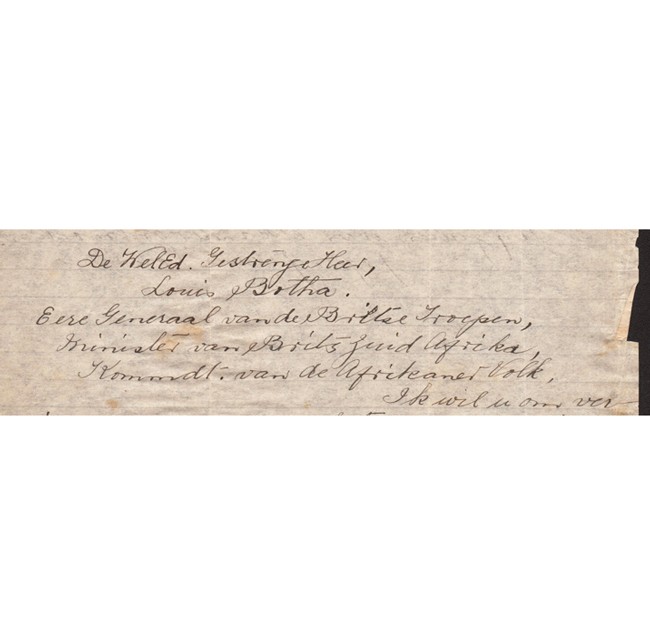 De WelEd. Gestrenge Heer,
Louis Botha.
Eere Generaal van de Britse Troepen,
Minister van Brits Zuid Afrika,
Kommdt. van de Afrikaner Volk,
Ik wil u om ver-